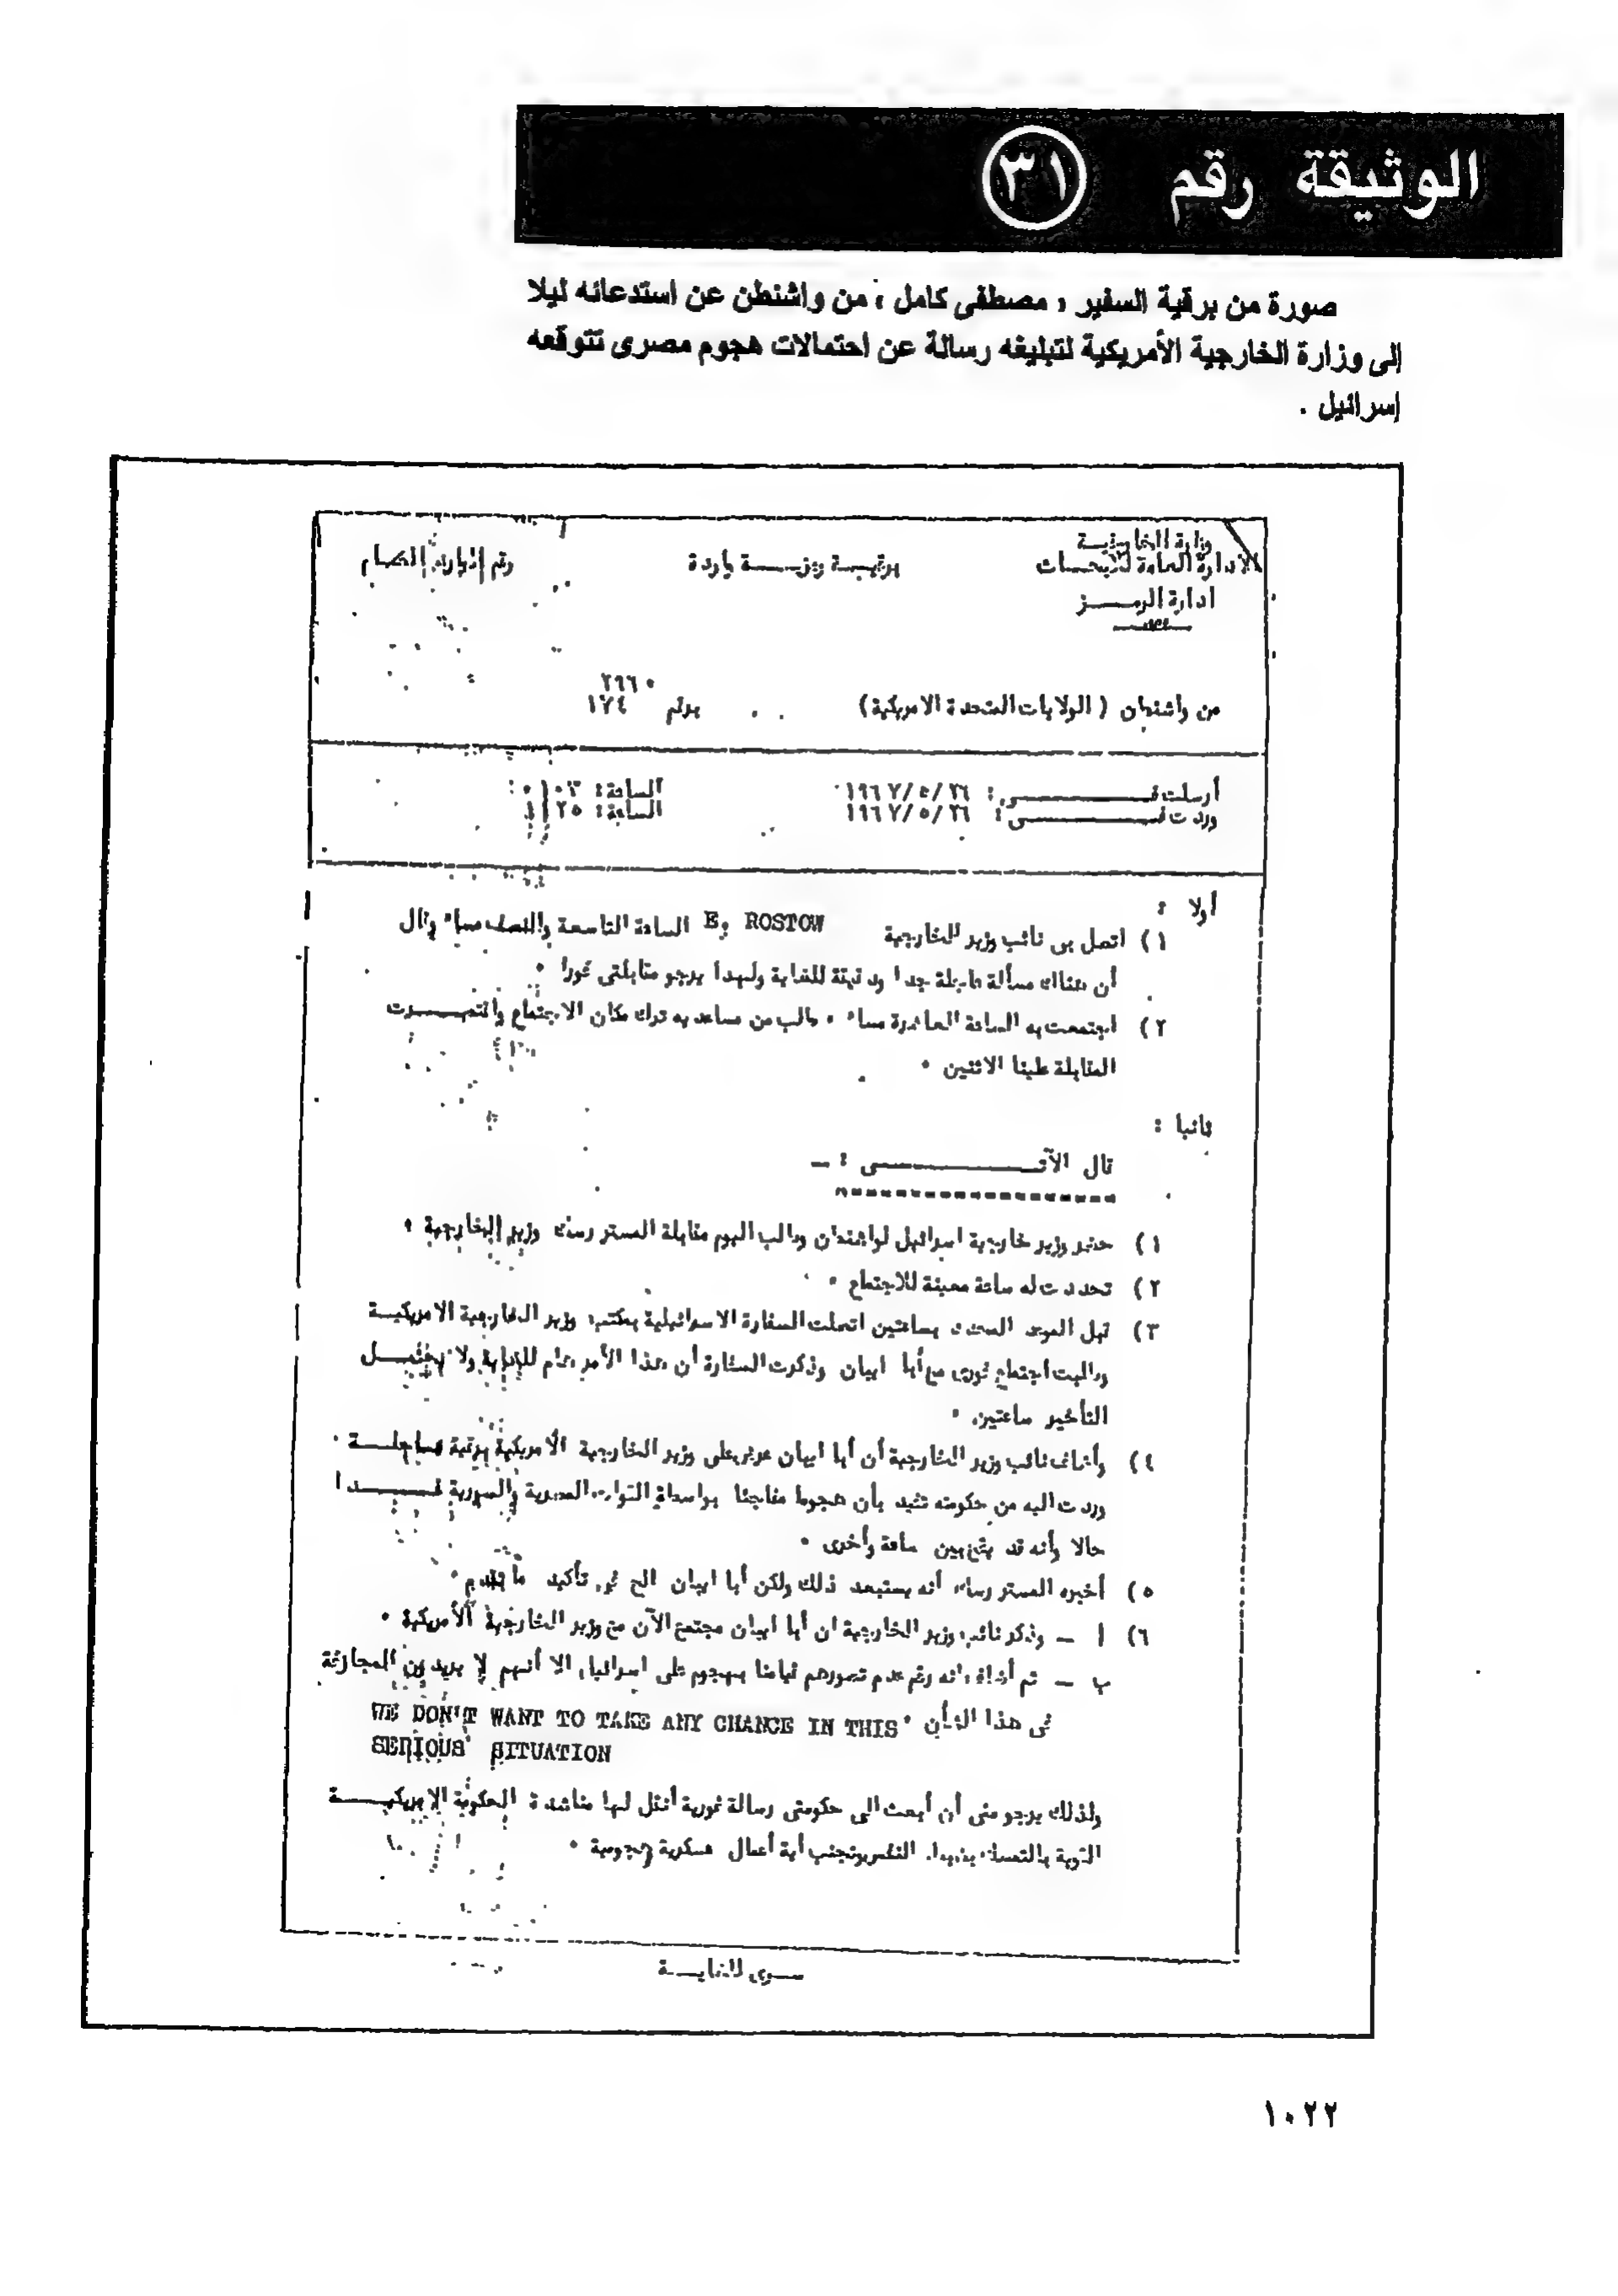 الوثيقة رقم ٣١
صورة من برقية السفير « مصطفى كامل » من واشنطن عن استدعائه ليلا
إلى وزارة الخارجية الأمريكية لتبليغه رسالة عن احتمالات هجوم مصرى تتوقعه
إسرائيل .
وزارة الخارجيــة
الادارة العامة للأبحــاث
ادارة الرمــــز
برقيــة رمزيــــة واردة
رقم الوارد العــام
٢٩٦٠
من واشنطن ( الولايات المتحدة الامريكية ) برقم ١٧٤
أرسلت فــــــى : ٢٦/ ٥/ ١٩٦٧ الساعة :
وردت فــــــى : ٢٦/ ٥/ ١٩٦٧ الساعة :
أولا :
١ ) اتصل بى نائب وزير الخارجية E. ROSTOW الساعة التاسعة والنصف مساء وقال
أن هناك مسألة عاجلة جدا ودقيقة للغاية ولهذا يرجو مقابلتى فورا .
٢ ) اجتمعت به الساعة العاشرة مساء . طلب من مساعديه ترك مكان الاجتماع واقتصـــرت
المقابلة علينا الاثنين .
ثانيا :
قال الآتــــــــى : ــ
١ ) حضر وزير خارجية اسرائيل لواشنطن وطلب اليوم مقابلة المستر رسك وزير الخارجية .
٢ ) تحددت له ساعة معينة للاجتماع .
٣ ) قبل الموعد المحدد بساعتين اتصلت السفارة الاسرائيلية بمكتب وزير الخارجية الامريكيــة
وطلبت اجتماع فورى مع أبا ايبان وذكرت السفارة أن هذا الأمر هام للغاية ولا يحتمــل
التأخير ساعتين .
٤ ) وأضاف نائب وزير الخارجية أن أبا ايبان عرض على وزير الخارجية الأمريكية برقية عاجلـــة
وردت اليه من حكومته تفيد بأن هجوما مفاجئا بواسطة القوات المصرية والسورية
حالا وأنه قد يقع بين ساعة وأخرى .
٥ ) أخبره المستر رسك أنه يستبعد ذلك ولكن أبا ايبان الح فى تأكيد ما تقدم .
٦ ) أ ــ وذكر نائب وزير الخارجية ان أبا ايبان مجتمع الآن مع وزير الخارجية الأمريكية .
ب ــ ثم أضاف انه رغم عدم تصورهم قيامنا بهجوم على اسرائيل الا أنهم لا يريدون المجازفة
فى هذا الشأن WE DON'T WANT TO TAKE ANY CHANCE IN THIS
SERIOUS SITUATION
ولذلك يرجو منى أن أبعث الى حكومتى رسالة فورية أنقل لها مناشدة الحكومة الامريكيـــة
القوية بالتمسك بضبط النفس وتجنب أية أعمال عسكرية هجومية .
ســرى للغايــة
١٠٢٢